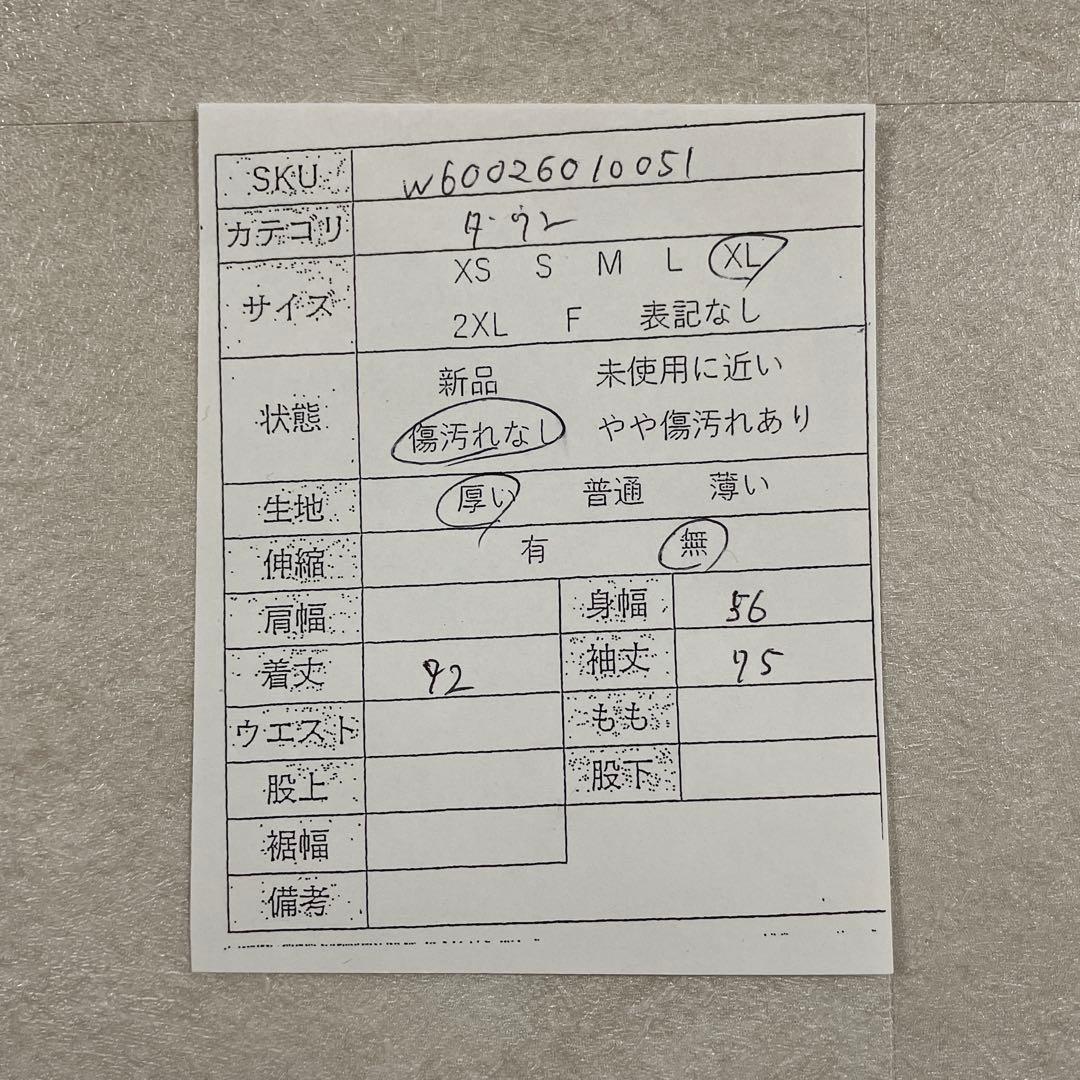 SKU W60026010051
カテゴリ ダウン
サイズ XS S M L XL
2XL F 表記なし
状態 新品 未使用に近い
傷汚れなし やや傷汚れあり
生地 厚い 普通 薄い
伸縮 有 無
肩幅 身幅 56
着丈 72 袖丈 75
ウエスト もも
股上 股下
裾幅
備考